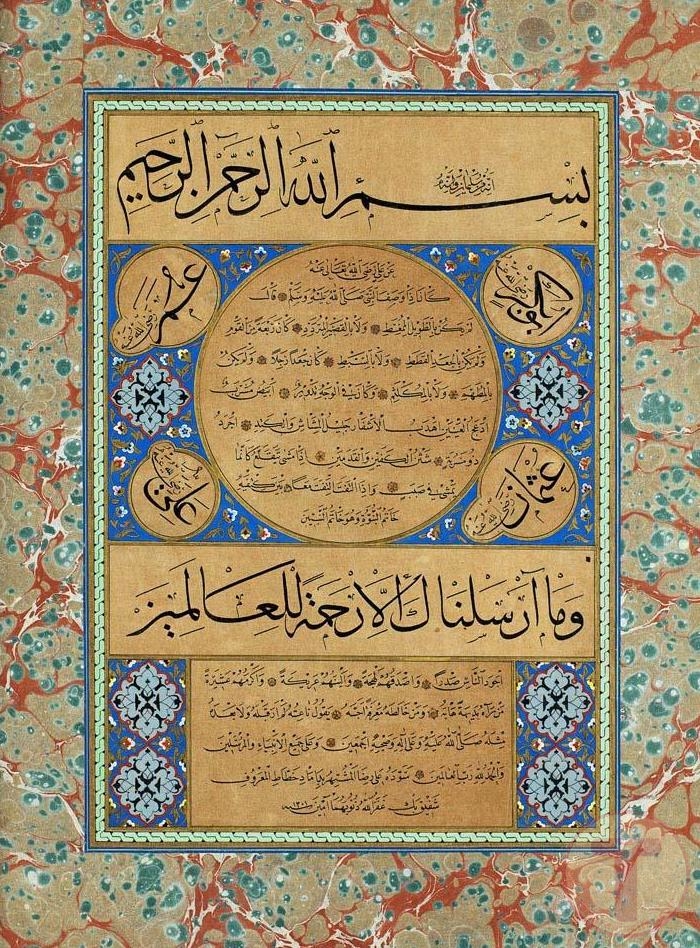 بسم الله الرحمن الرحيم
انه من سليمان وانه
ابو بكر رضي الله عنه
عمر رضي الله عنه
عن علي رضي الله تعالى عنه
كان اذا وصف النبي صلى الله عليه وسلم قال
لم يكن بالطويل الممغط ولا بالقصير المتردد كان ربعة من القوم
ولم يكن بالجعد القطط ولا بالسبط كان جعدا رجلا ولم يكن
بالمطهم ولا بالمكلثم وكان في الوجه تدوير ابيض مشرب
ادعج العينين اهدب الاشفار جليل المشاش والكتد اجرد
ذو مسربة شثن الكفين والقدمين اذا مشى تقلع كانما
يمشي في صبب واذا التفت التفت معا بين كتفيه
خاتم النبوة وهو خاتم النبيين
عثمان رضي الله عنه
علي رضي الله عنه
وما ارسلناك الا رحمة للعالمين
اجود الناس صدرا واصدقهم لهجة والينهم عريكة واكرمهم عشيرة
من رآه بديهة هابه ومن خالطه معرفة احبه يقول ناعته لم ار قبله ولا بعده
مثله صلى الله عليه وعلى آله وصحبه اجمعين وعلى جميع الانبياء والمرسلين
والحمد لله رب العالمين سوده علي رضا المشتهر المعروف
شفيق بك غفر الله ذنوبهما آمين